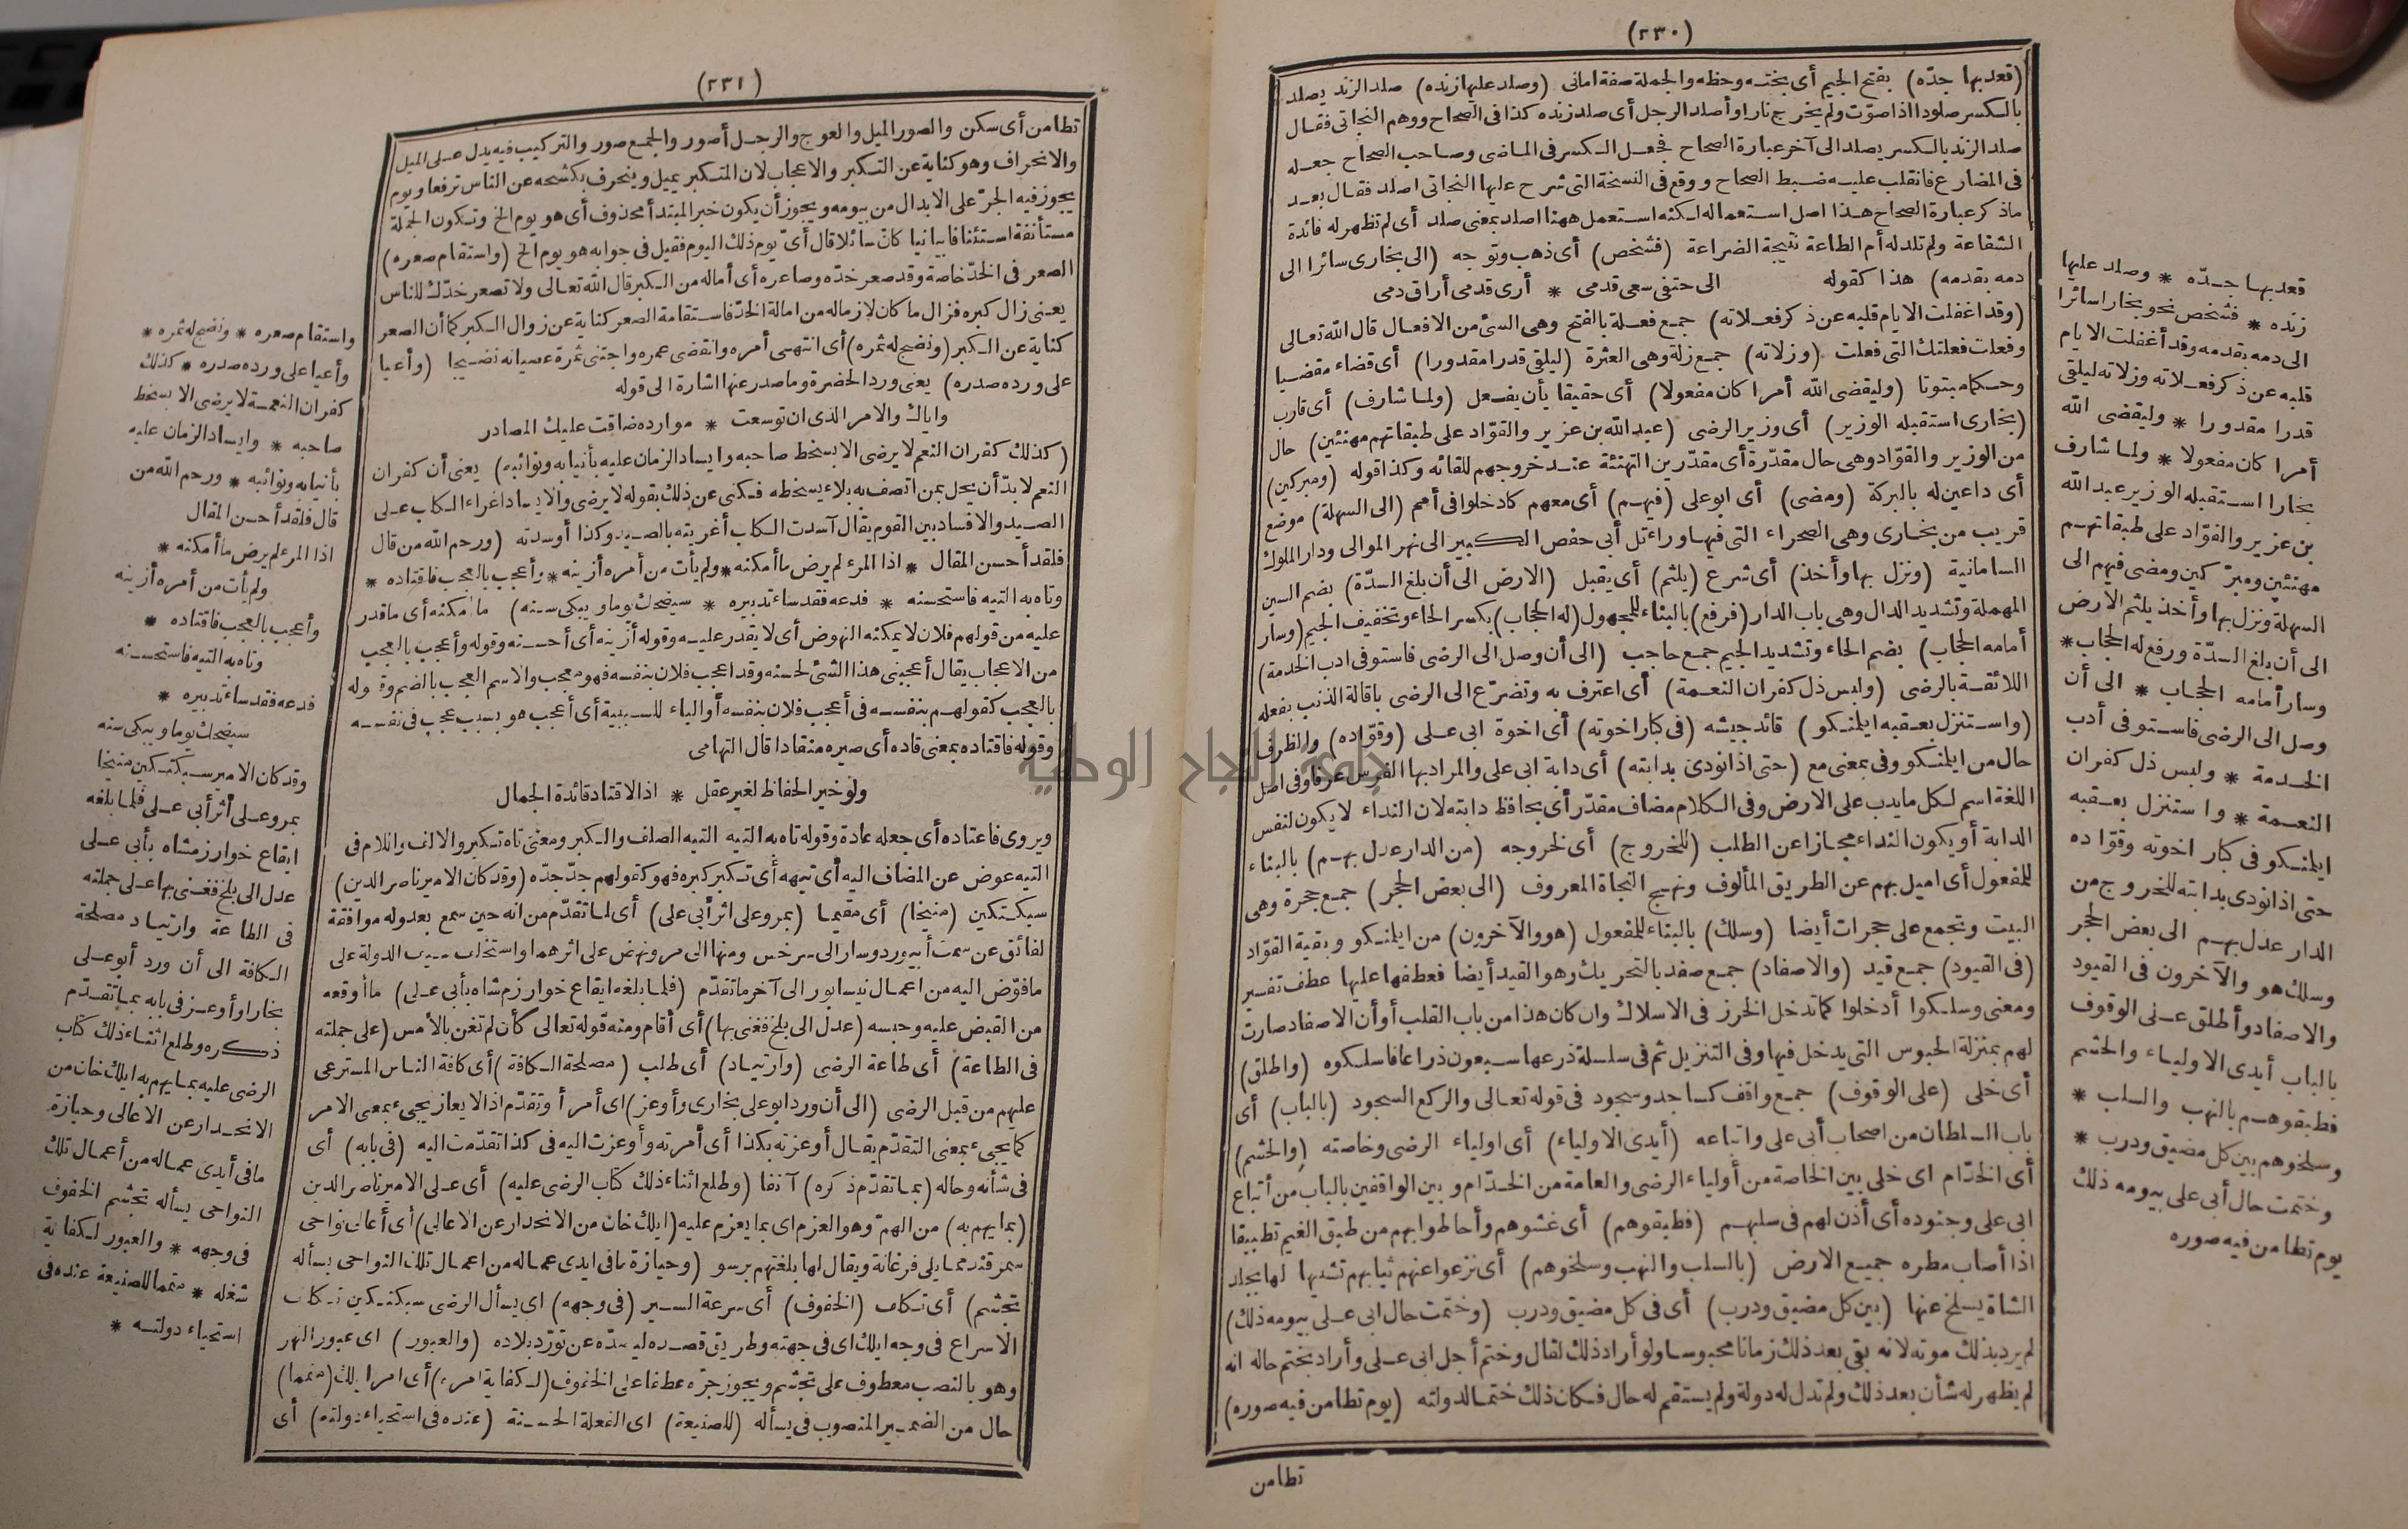 (٢٣٠)
(قعد بها جدّه) بفتح الجيم أى بختـه وحظه والجملة صفة امانى (وصلد عليها زنده) صلد الزند يصلد
بالكسر صلودا اذا صوّت ولم يخرج نارا وأصلد الرجل أى صلد زنده كذا فى الصحاح ووهم النجاتى فقال
صلد الزند بالكسر يصلد الى آخر عبارة الصحاح فجعل الكسر فى الماضى وصاحب الصحاح جعله
فى المضارع فانقلب عليه ضبط الصحاح ووقع فى النسخة التى شرح عليها النجاتى اصلد فقال بعد
ماذكر عبارة الصحاح هذا اصل استعماله لكنه استعمل ههنا اصلد بمعنى صلد أى لم تظهر له فائدة
الشفاعة ولم تلد له أم الطاعة نتيجة الضراعة (فشخص) أى ذهب وتوجه (الى بخارى سائرا الى
دمه بقدمه) هذا كقوله الى حتفى سعى قدمى * أرى قدمى أراق دمى
(وقد اغفلت الايام قلبه عن ذكر فعلاته) جمع فعلة بالفتح وهى السئ من الافعال قال الله تعالى
وفعلت فعلتك التى فعلت (وزلاته) جمع زلة وهى العثرة (ليلقى قدرا مقدورا) أى قضاء مقضيا
وحكما مبتوتا (وليقضى الله أمرا كان مفعولا) أى حقيقا بأن يفعل (ولما شارف) أى قارب
(بخارى استقبله الوزير) أى وزير الرضى (عبد الله بن عزير والقوّاد على طبقاتهم مهنئين) حال
من الوزير والقوّاد وهى حال مقدّرة أى مقدّرين التهنئة عند خروجهم للقائه وكذا قوله (ومبركين)
أى داعين له بالبركة (ومضى) أى ابو على (فيهم) أى معهم كادخلوا فى أمم (الى السهلة) موضع
قريب من بخارى وهى الصحراء التى فيها وراء تل أبى حفص الكبير الى نهر الموالى ودار الملوك
السامانية (ونزل بها وأخذ) أى شرع (يلثم) أى يقبل (الارض الى أن بلغ السدّة) بضم السين
المهملة وتشديد الدال وهى باب الدار (فرفع) بالبناء للمجهول (له الحجاب) بكسر الحاء وتخفيف الجيم (وسار
أمامه الحجاب) بضم الحاء وتشديد الجيم جمع حاجب (الى أن وصل الى الرضى فاستوفى ادب الخدمة)
اللائقة بالرضى (ولبس ذل كفران النعمة) أى اعترف به وتضرّع الى الرضى باقالة الذنب بفعله
(واستنزل بعقبه ايلمنكو) قائد جيشه (فى كبار اخوته) أى اخوة ابى على (وقوّاده) والظرف
حال من ايلمنكو وفى بمعنى مع (حتى اذا نودى بدابته) أى دابة ابى على والمراد بها الفرس عرفا وفى اصل
اللغة اسم لكل مايدب على الارض وفى الكلام مضاف مقدّر أى بحافظ دابته لان النداء لا يكون لنفس
الدابة أو يكون النداء مجازا عن الطلب (للخروج) أى لخروجه (من الدار عدل بهم) بالبناء
للمفعول أى اميل بهم عن الطريق المألوف ونهج النجاة المعروف (الى بعض الحجر) جمع حجرة وهى
البيت وتجمع على حجرات أيضا (وسلك) بالبناء للمفعول (هو والآخرون) من ايلمنكو وبقية القوّاد
(فى القيود) جمع قيد (والاصفاد) جمع صفد بالتحريك وهو القيد أيضا فعطفها عليها عطف تفسير
ومعنى وسلكوا أدخلوا كما تدخل الخرز فى الاسلاك وان كان هذا من باب القلب أو أن الاصفاد صارت
لهم بمنزلة الحبوس التى يدخل فيها وفى التنزيل ثم فى سلسلة ذرعها سبعون ذراعا فاسلكوه (واطلق)
أى خلى (على الوقوف) جمع واقف كساجد وسجود فى قوله تعالى والركع السجود (بالباب) أى
باب السلطان من اصحاب أبى على واتباعه (أيدى الاولياء) أى اولياء الرضى وخاصته (والحشم)
أى الخدّام اى خلى بين الخاصة من أولياء الرضى والعامة من الخدّام وبين الواقفين بالباب من أتباع
ابى على وجنوده أى أذن لهم فى سلبهم (فطبقوهم) أى غشوهم وأحاطوا بهم من طبق الغيم تطبيقا
اذا أصاب مطره جميع الارض (بالسلب والنهب وسلخوهم) أى نزعوا عنهم ثيابهم تشبيها لها بجلد
الشاة يسلخ عنها (بين كل مضيق ودرب) أى فى كل مضيق ودرب (وختمت حال ابى على بيومه ذلك)
لم يرد بذلك موته لانه بقى بعد ذلك زمانا محبوسا ولو أراد ذلك لقال وختم أجل ابى على وأراد بختم حاله انه
لم يظهر له شأن بعد ذلك ولم تدل له دولة ولم يستقم له حال فكان ذلك ختما لدولته (يوم تطامن فيه صوره)
تطامن
قعد بها جدّه * وصلد عليها
زنده * فشخص نحو بخارا سائرا
الى دمه بقدمه وقد أغفلت الايام
قلبه عن ذكر فعلاته وزلاته ليلقى
قدرا مقدورا * وليقضى الله
أمرا كان مفعولا * ولما شارف
بخارا استقبله الوزير عبد الله
بن عزير والقوّاد على طبقاتهم
مهنئين ومبرّكين ومضى فيهم الى
السهلة ونزل بها وأخذ يلثم الأرض
الى أن بلغ السدّة ورفع له الحجاب *
وسار أمامه الحجاب * الى أن
وصل الى الرضى فاستوفى أدب
الخدمة * ولبس ذل كفران
النعمة * واستنزل بعقبه
ايلمنكو فى كبار اخوته وقوّاده
حتى اذا نودى بدابته للخروج من
الدار عدل بهم الى بعض الحجر
وسلك هو والآخرون فى القيود
والاصفاد وأطلق عن الوقوف
بالباب أيدى الاولياء والحشم
فطبقوهم بالنهب والسلب *
وسلخوهم بين كل مضيق ودرب *
وختمت حال أبى على بيومه ذلك
يوم تطامن فيه صوره
(٢٣١)
تطامن أى سكن والصور الميل والعوج والرجل أصور والجمع صور والتركيب فيه يدل على الميل
والانحراف وهو كناية عن التكبر والاعجاب لان المتكبر يميل وينحرف بكشحه عن الناس ترفعا ويوم
يجوز فيه الجرّ على الابدال من بيومه ويجوز أن يكون خبر المبتدأ محذوف أى هو يوم الخ وتكون الجملة
مستأنفة استئنافا بيانيا كانّ سائلا قال أىّ يوم ذلك اليوم فقيل فى جوابه هو يوم الخ (واستقام صعره)
الصعر فى الخدّ خاصة وقد صعر خدّه وصاعره أى أماله من الكبر قال الله تعالى ولا تصعر خدّك للناس
يعنى زال كبره فزال ما كان لازماله من امالة الخدّ فاستقامة الصعر كناية عن زوال الكبر كما أن الصعر
كناية عن الكبر (ونضج له ثمره) أى انتهى أمره وانقضى عمره واجتنى ثمرة عصيانه نضيجا (وأعيا
على ورده صدره) يعنى ورد الحضرة وما صدر عنها اشارة الى قوله
واياك والامر الذى ان توسعت * موارده ضاقت عليك المصادر
(كذلك كفران النعم لا يرضى الا بسخط صاحبه وايساد الزمان عليه بأنيابه ونوائبه) يعنى أن كفران
النعم لا بدّ أن يحل بمن اتصف به بلاء يسخطه فكنى عن ذلك بقوله لا يرضى والايساد اغراء الكلب على
الصيد والافساد بين القوم يقال آسدت الكلب أغريته بالصيد وكذا أوسدته (ورحم الله من قال
فلقد أحسن المقال * اذا المرء لم يرض ما أمكنه * ولم يأت من أمره أزينه * وأعجب بالعجب فاقتاده *
وتاه به التيه فاستحسنه * فدعه فقد ساء تدبيره * سيضحك يوما ويبكى سنه) ما أمكنه أى ما قدر
عليه من قولهم فلان لا يمكنه النهوض أى لا يقدر عليه وقوله أزينه أى أحسنه وقوله وأعجب بالعجب
من الاعجاب يقال أعجبنى هذا الشئ لحسنه وقد اعجب فلان بنفسه فهو معجب والاسم العجب بالضم وقوله
بالعجب كقولهم بنفسه فى أعجب فلان بنفسه أو الباء للسببية أى أعجب هو بسبب عجب فى نفسه
وقوله فاقتاده بمعنى قاده أى صيره منقادا قال التهامى
ولو خير الحفاظ لغير عقل * اذا لاقتاد قائدة الجمال
ويروى فاعتاده أى جعله عادة وقوله تاه به التيه التيه الصلف والكبر ومعنى تاه تكبر والالف واللام فى
التيه عوض عن المضاف اليه أى تيهه أى تكبر كبره فهو كقولهم جدّ جدّه (وقد كان الامير ناصر الدين)
سبكتكين (منيخا) أى مقيما (بمرو على اثر أبى على) أى لما تقدّم من انه حين سمع بعدوله موافقة
لفائق عن سمت أبيورد وسار الى سرخس ومنها الى مرو نهض على اثرهما واستخلف سيف الدولة على
ما فوّض اليه من اعمال نيسابور الى آخر ما تقدّم (فلما بلغه ايقاع خوارزم شاه بأبى على) ما أوقعه
من القبض عليه وحبسه (عدل الى بلخ فغنى بها) أى أقام ومنه قوله تعالى كأن لم تغن بالأمس (على جملته
فى الطاعة) أى طاعة الرضى (وارتياد) أى طلب (مصلحة الكافة) أى كافة الناس المسترعى
عليهم من قبل الرضى (الى أن ورد ابو على بخارى وأوعز) اى أمر أو تقدّم اذ الايعاز يجىء بمعنى الامر
كما يجىء بمعنى التقدّم يقال أوعزته بكذا أى أمرته وأوعزت اليه فى كذا تقدّمت اليه (فى بابه) أى
فى شأنه وحاله (بما تقدّم ذكره) آنفا (وطلع اثناء ذلك كتاب الرضى عليه) أى على الامير ناصر الدين
(بما يهم به) من الهمّ وهو العزم اى بما يعزم عليه (ايلك خان من الانحدار عن الاعالى) أى أعالى نواحى
سمرقند مما يلى فرغانة ويقال لها بلغتهم برسو (وحيازة ما فى ايدى عماله من اعمال تلك النواحى يسأله
تجشم) أى تكلف (الخفوف) أى سرعة السير (فى وجهه) اى يسأل الرضى سبكتكين تكلف
الاسراع فى وجه ايلك اى فى جهته وطريق قصده ليسدّه عن تورّد بلاده (والعبور) اى عبور النهر
وهو بالنصب معطوف على تجشم ويجوز جرّه عطفا على الخفوف (لكفاية امره) أى امر ايلك (متمما)
حال من الضمير المنصوب فى يسأله (للصنيعة) اى الفعلة الحسنة (عنده فى استحياء دولته) أى
واستقام صعره * ونضج له ثمره *
وأعيا على ورده صدره * كذلك
كفران النعمة لا يرضى الا بسخط
صاحبه * وايساد الزمان عليه
بأنيابه ونوائبه * ورحم الله من
قال فلقد أحسن المقال
اذا المرء لم يرض ما أمكنه *
ولم يأت من أمره أزينه
وأعجب بالعجب فاقتاده *
وتاه به التيه فاستحسنه
فدعه فقد ساء تدبيره *
سيضحك يوما ويبكى سنه
وقد كان الامير سبكتكين منيخا
بمرو على أثر أبى على فلما بلغه
ايقاع خوارزمشاه بأبى على
عدل الى بلخ فغنى بها على جملته
فى الطاعة وارتياد مصلحة
الكافة الى أن ورد أبو على
بخارا وأوعز فى بابه بما تقدّم
ذكره وطلع اثناء ذلك كتاب
الرضى عليه بما يهم به ايلك خان من
الانحدار عن الاعالى وحيازة
ما فى أيدى عماله من أعمال تلك
النواحى يسأله تجشم الخفوف
فى وجهه * والعبور لكفاية
شغله * متمما للصنيعة عنده فى
استحياء دولته *
جامعة النجاح الوطنية